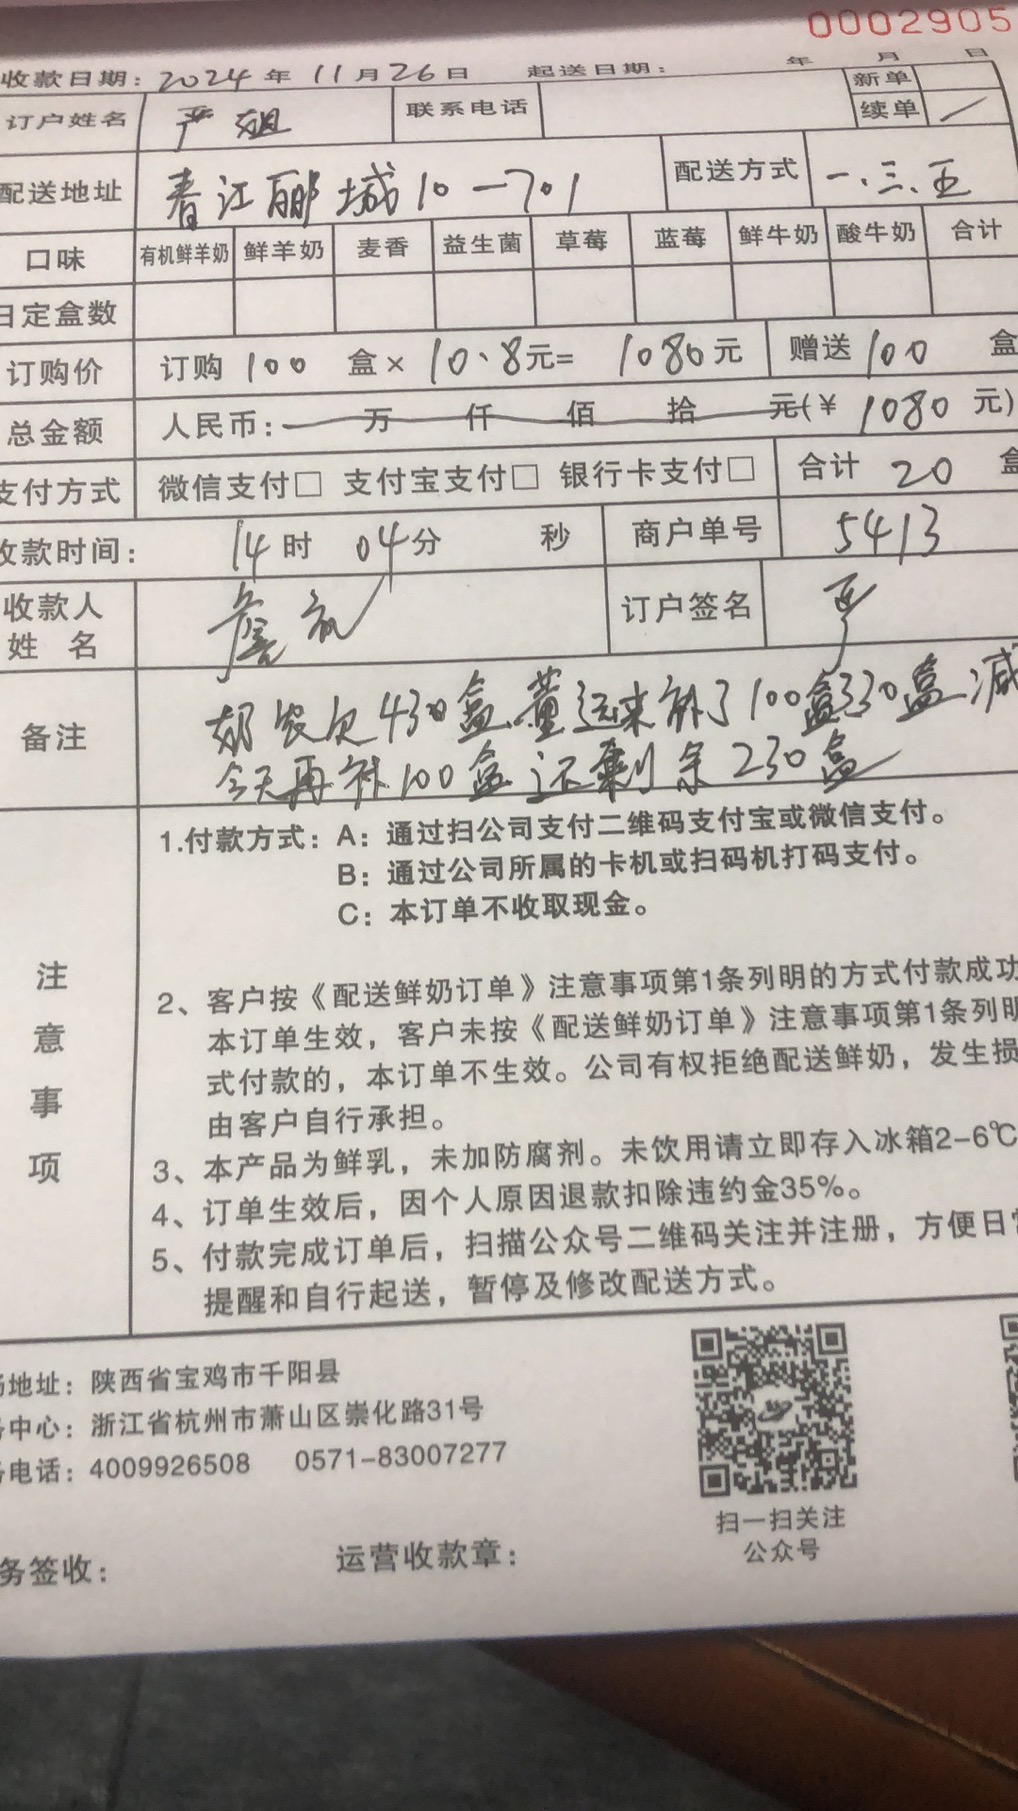 0002905
收款日期：2024年11月26日 起送日期： 年 月 日
订户姓名 严姐 联系电话 新单
续单 /
配送地址 春江郦城10-701 配送方式 一、三、五
口味 有机鲜羊奶 鲜羊奶 麦香 益生菌 草莓 蓝莓 鲜牛奶 酸牛奶 合计
日定盒数
订购价 订购 100 盒× 10.8元= 1080元 赠送100 盒
总金额 人民币： 万 仟 佰 拾 元(￥ 1080 元)
支付方式 微信支付□ 支付宝支付□ 银行卡支付□ 合计 20 盒
收款时间： 14时 04分 秒 商户单号 5413
收款人
姓 名 订户签名
备注 欠430盒 补了100盒330盒 减
今天再补100盒 还剩余230盒
注意事项
1.付款方式：A：通过扫公司支付二维码支付宝或微信支付。
B：通过公司所属的卡机或扫码机打码支付。
C：本订单不收取现金。
2、客户按《配送鲜奶订单》注意事项第1条列明的方式付款成功
本订单生效，客户未按《配送鲜奶订单》注意事项第1条列明
式付款的，本订单不生效。公司有权拒绝配送鲜奶，发生损
由客户自行承担。
3、本产品为鲜乳，未加防腐剂。未饮用请立即存入冰箱2-6℃
4、订单生效后，因个人原因退款扣除违约金35%。
5、付款完成订单后，扫描公众号二维码关注并注册，方便日常
提醒和自行起送，暂停及修改配送方式。
地址：陕西省宝鸡市千阳县
中心：浙江省杭州市萧山区崇化路31号
电话：4009926508 0571-83007277
扫一扫关注
公众号
务签收： 运营收款章：